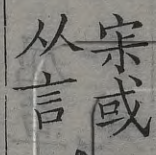 宋或
从言